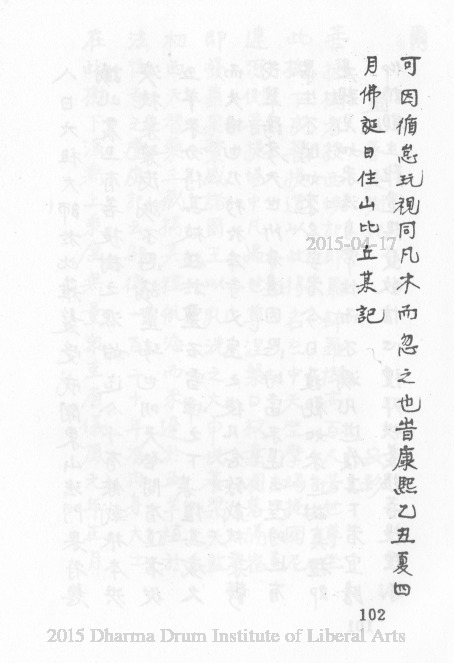 可因循怠玩視同凡木而忽之也昔康熙乙丑夏四
月佛誕日住山比丘某記
2015-04-17
102
2015 Dharma Drum Institute of Liberal Arts